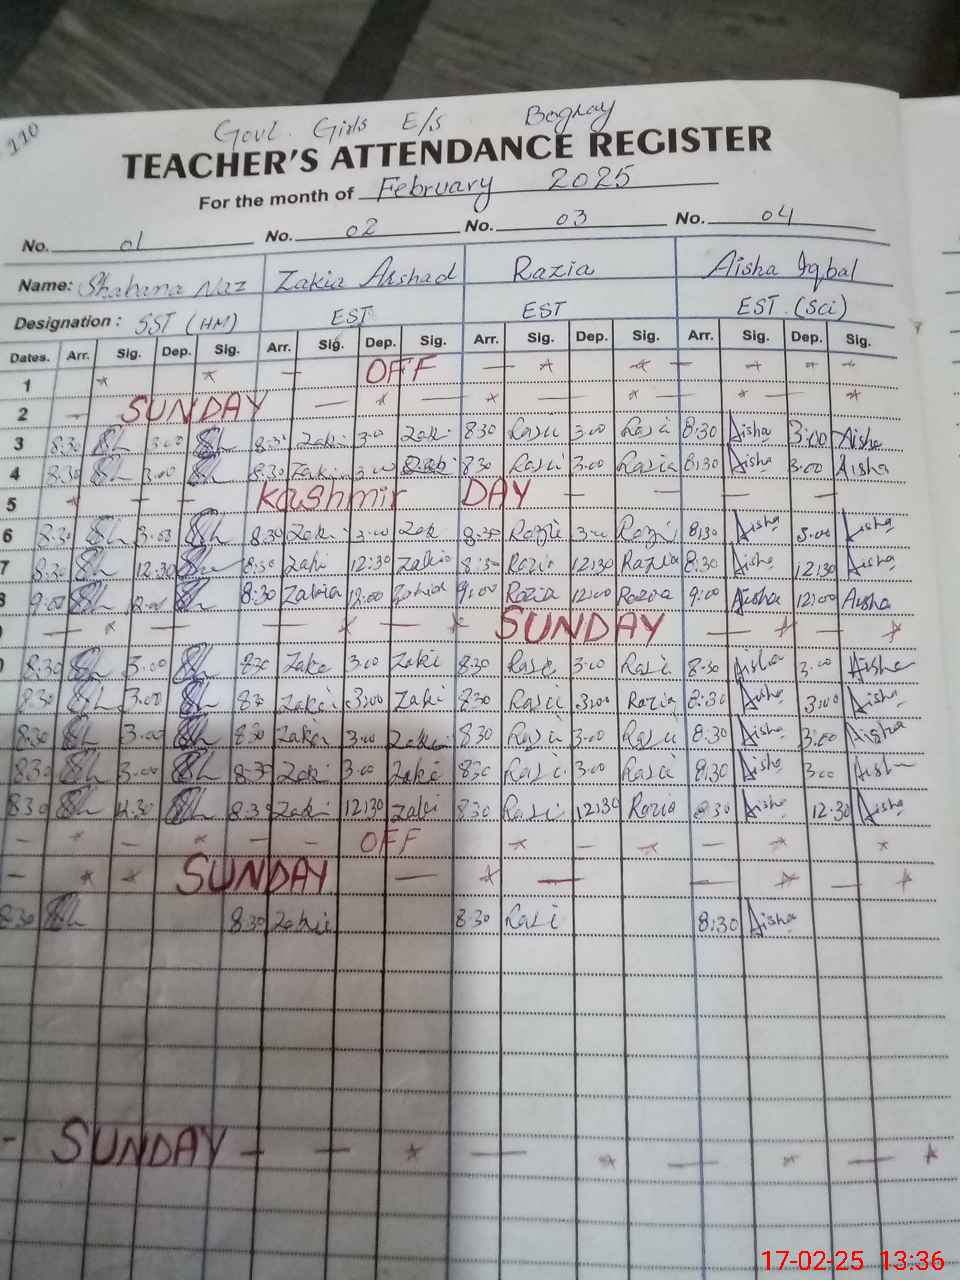 110
Govt. Girls E/s Baghay
TEACHER'S ATTENDANCE REGISTER
For the month of February 2025
No. 01 No. 02 No. 03 No. 04
Name: Shahana Naz Zakia Arshad Razia Aisha Iqbal
Designation: SST (HM) EST EST EST (Sci)
Dates. Arr. Sig. Dep. Sig. Arr. Sig. Dep. Sig. Arr. Sig. Dep. Sig. Arr. Sig. Dep. Sig.
1 OFF
2 SUNDAY
3 8:30 3:00 8:30 Zaki 3:00 Zaki 8:30 Razi 3:00 Razi 8:30 Aisha 3:00 Aisha
4 8:30 3:00 8:30 Zaki 3:00 Zaki 8:30 Razi 3:00 Razia 8:30 Aisha 3:00 Aisha
5 Kashmir DAY
6 8:30 3:00 8:30 Zaki 3:00 Zaki 8:30 Razi 3:00 Razi 8:30 Aisha 3:00 Aisha
7 8:30 12:30 8:30 Zaki 12:30 Zakia 8:30 Razia 12:30 Razia 8:30 Aisha 12:30 Aisha
8 9:00 12:00 8:30 Zakia 12:00 Zakia 9:00 Razia 12:00 Razia 9:00 Aisha 12:00 Aisha
SUNDAY
8:30 3:00 8:30 Zaki 3:00 Zaki 8:30 Razi 3:00 Razi 8:30 Aisha 3:00 Aisha
8:30 3:00 8:30 Zaki 3:00 Zaki 8:30 Razi 3:00 Razia 8:30 Aisha 3:00 Aisha
8:30 3:00 8:30 Zaki 3:00 Zaki 8:30 Razi 3:00 Razi 8:30 Aisha 3:00 Aisha
8:30 3:00 8:30 Zaki 3:00 Zaki 8:30 Razi 3:00 Razi 8:30 Aisha 3:00 Aisha
8:30 12:30 8:30 Zaki 12:30 Zaki 8:30 Razi 12:30 Razia 8:30 Aisha 12:30 Aisha
OFF
SUNDAY
8:30 8:30 Zaki 8:30 Razi 8:30 Aisha
SUNDAY
17-02-25 13:36